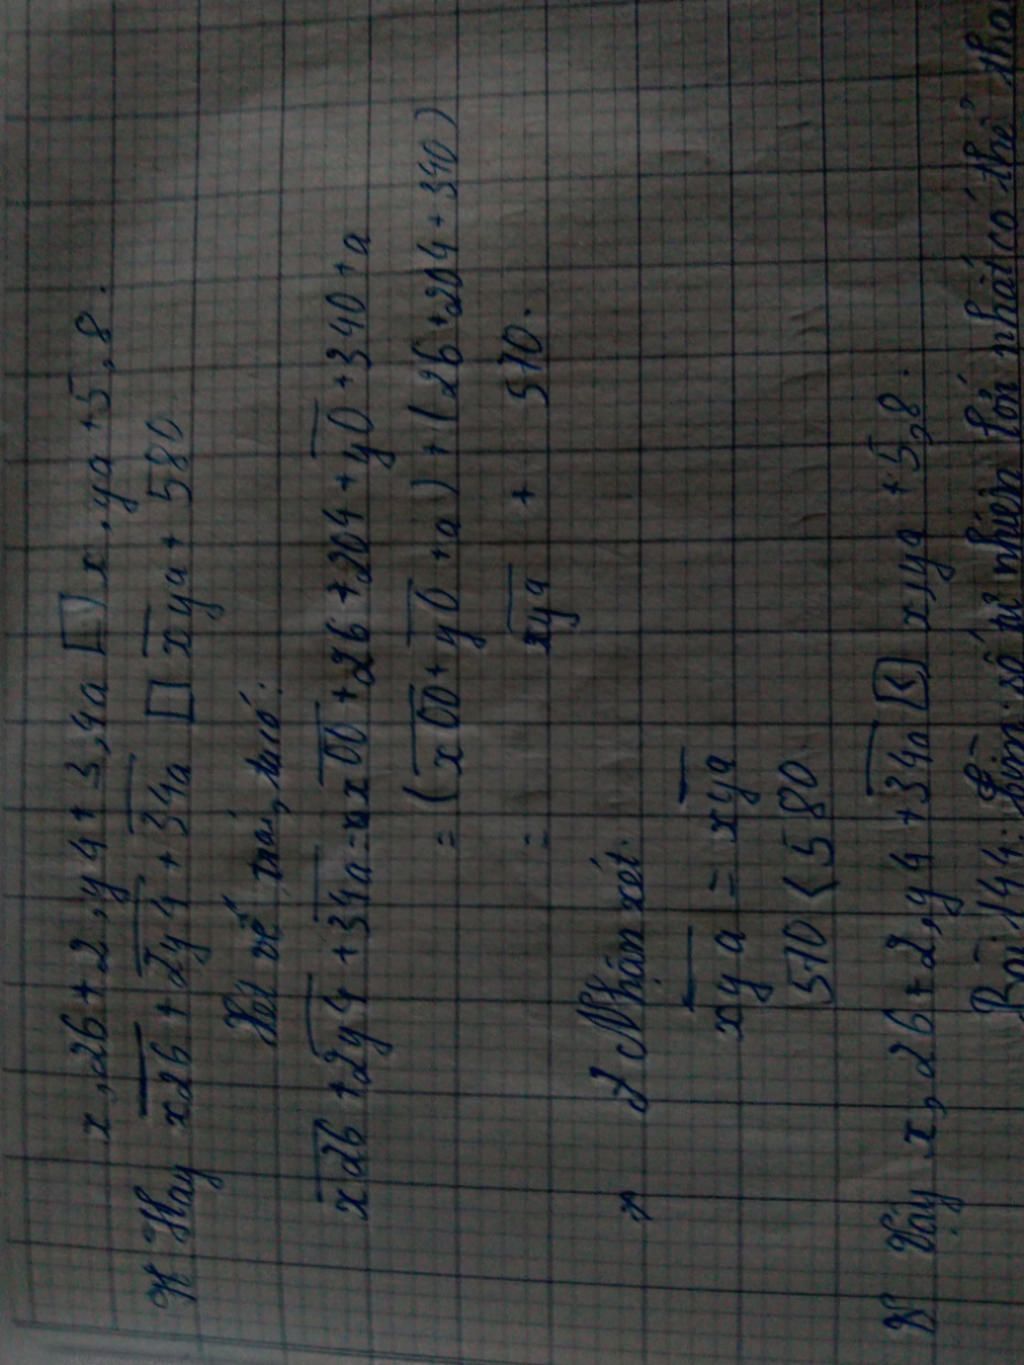 x,26 + 2,y4 + 3,4a □ x,ya + 5,8.
Hay x26 + 2y4 + 34a □ xya + 580
Xét vế trái, ta có:
x26 + 2y4 + 34a = x00 + 26 + 204 + y0 + 340 + a
= (x00 + y0 + a) + (26 + 204 + 340)
= xya + 570.
Nhận xét.
xya = xya
570 < 580.
Vậy x,26 + 2,y4 + 34a < x,ya + 5,8.
Bài 144: Tìm số tự nhiên lớn nhất có thể